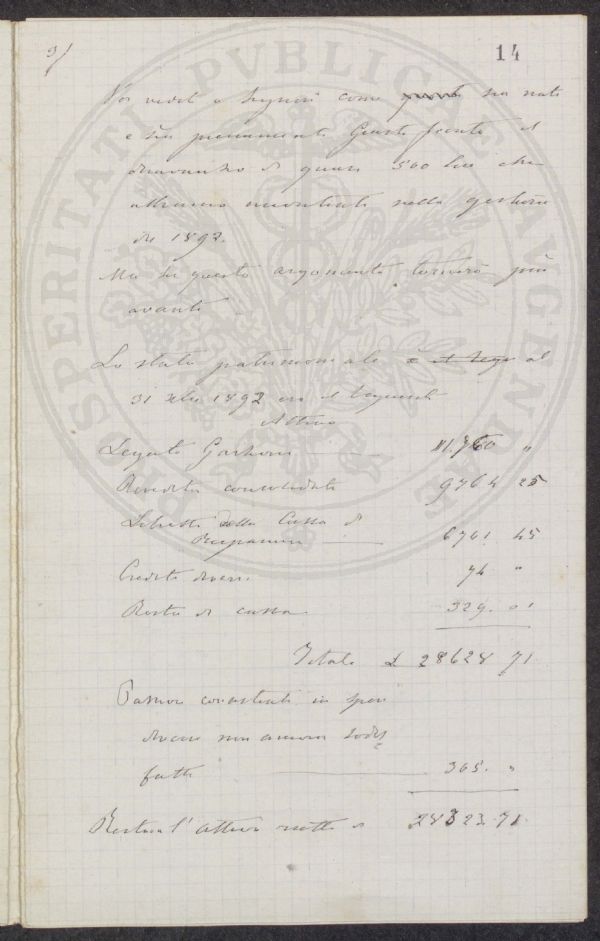 3/ 14
Voi vedete o Signori come sia nata
e sia pienamente Giusta fronte il
disavanzo di quasi 500 lire che
abbiamo riscontrato nella gestione
del 1892.
Ma su questo argomento tornerò più
avanti
Lo stato patrimoniale al
31 Xbre 1892 era il seguente
Attivo
Legato 11.760 "
Rendita consolidata 9764 25
Libretti della Cassa di
Risparmio 6701 45
Crediti diversi 74 "
Resto di cassa 329. 01
Totale £ 28628 71
Passivo consistente in spese
diverse non ancora soddis
fatte 365. "
Resta l'attivo netto 28323.71
PROSPERITATI PVBLICAE AVGENDAE